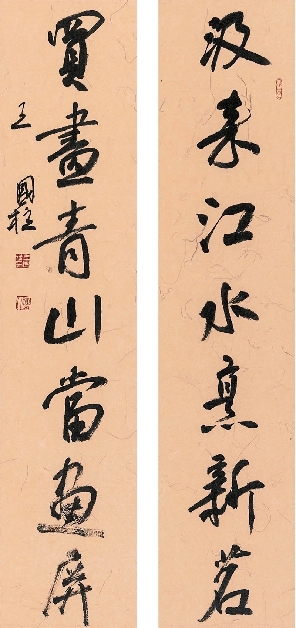 汲來江水烹新茗
買盡青山當畫屏
王國柱